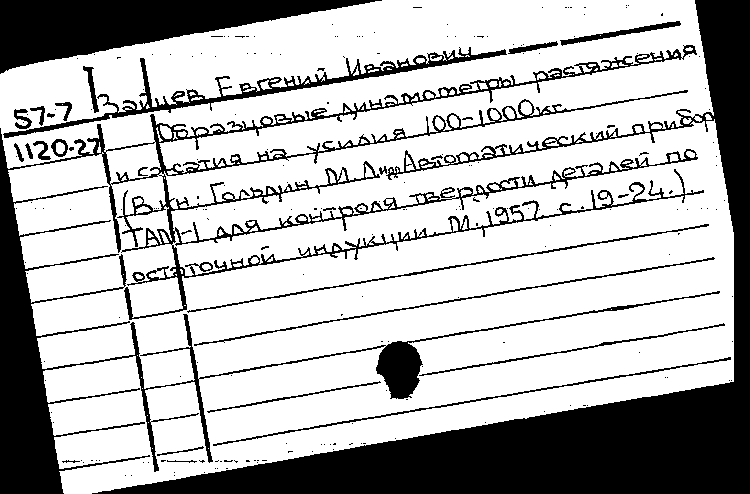 57-7 Зайцев, Евгений Иванович
1120-27 Образцовые динамометры растяжения
и сжатия на усилия 100-1000кг.
(В кн: Гольдин, М.Л. и др. Автоматический прибор
ТАМ-1 для контроля твердости деталей по
остаточной индукции. М., 1957. с. 19-24.).